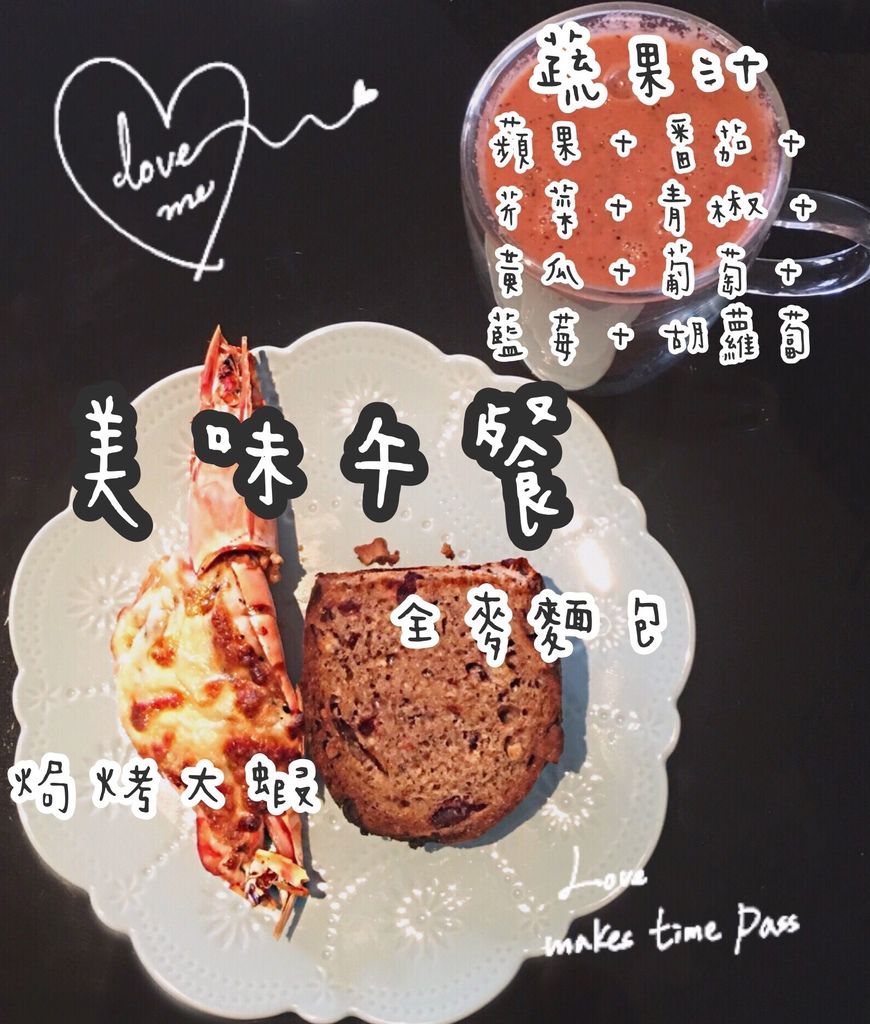 love
me
蔬果汁
蘋果+番茄+
芥菜+青椒+
黃瓜+葡萄+
藍莓+胡蘿蔔
美味午餐
全麥麵包
焗烤大蝦
Love
makes time Pass